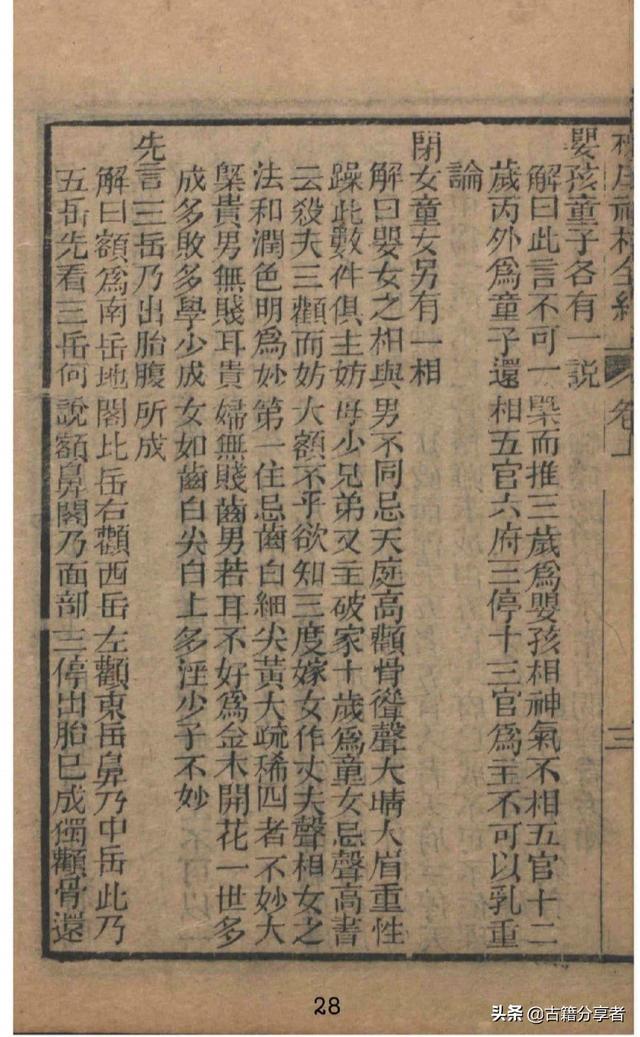 神相全編 卷上 三
嬰孩童子各有一說
解曰此言不可一槩而推三歲爲嬰孩相神氣不相五官十二
歲丙外爲童子還相五官六府三停十三官爲主不可以乳重
論
閉女童女另有一相
解曰嬰女之相與男不同忌天庭高顴骨聳聲大睛大眉重性
躁此數件俱主妨母少兄弟又主破家十歲爲童女忌聲高書
云殺夫三顴而妨大額不乎欲知三度嫁女作丈夫聲相女之
法和潤色明爲妙第一住忌齒白細尖黃大疏稀四者不妙大
槩貴男無賤耳貴婦無賤齒男若耳不好爲金木開花一世多
成多敗多學少成女如齒白尖白上多汪少子不妙
先言三岳乃出胎腹所成
解曰額爲南岳地閣此岳右顴西岳左顴東岳鼻乃中岳此乃
五岳先看三岳何說額鼻閣乃面部三停出胎已成獨顴骨還
28
头条 @古籍分享者